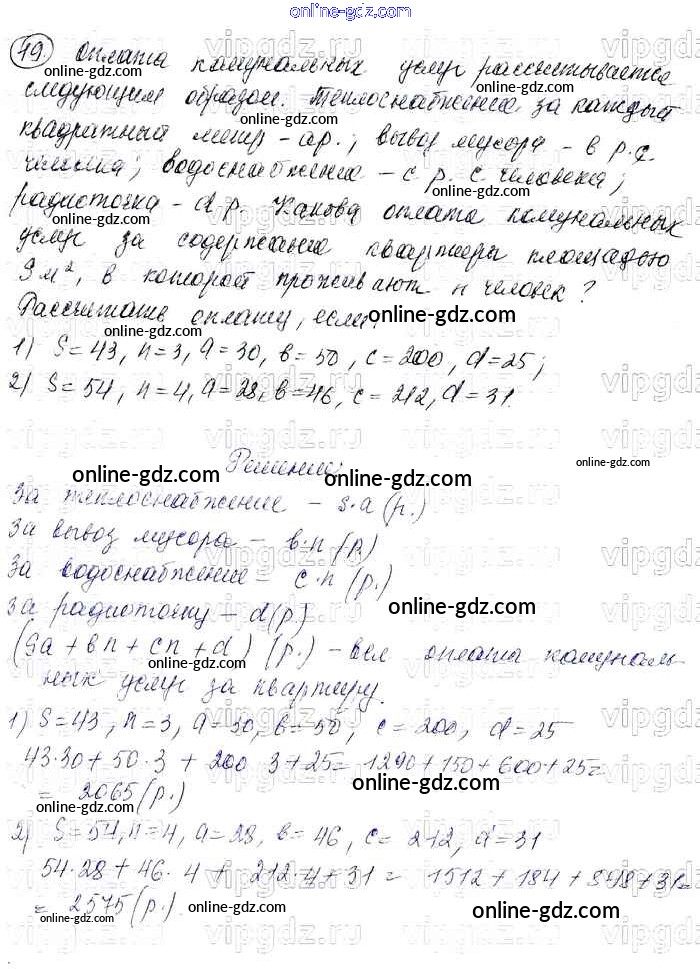 19. Оплата комунальных услуг рассчитывается
следующим образом. Теплоснабжение за каждый
квадратный метр - а р.; вывоз мусора - в р. с
человека; водоснабжение - с р. с человека;
радиоточка - d р. Какова оплата комунальных
услуг за содержание квартиры площадью
S м², в которой проживают n человек?
Рассчитать оплату, если:
1) S=43, n=3, a=30, в=50, c=200, d=25;
2) S=54, n=4, a=28, в=46, c=212, d=31.
Решение:
За теплоснабжение - s·a (р.)
За вывоз мусора - в·n (р.)
За водоснабжение - c·n (р.)
За радиоточку - d (р.)
(Sa + вn + cn + d) (р.) - вся оплата комуналь-
ных услуг за квартиру.
1) S=43, n=3, a=30, в=50, c=200, d=25
43·30 + 50·3 + 200 3 + 25 = 1290 + 150 + 600 + 25 =
= 2065 (р.)
2) S=54, n=4, a=28, в=46, c=212, d=31
54·28 + 46·4 + 212·4 + 31 = 1512 + 184 + 848 + 31 =
= 2575 (р.)
online-gdz.com
vipgdz.ru